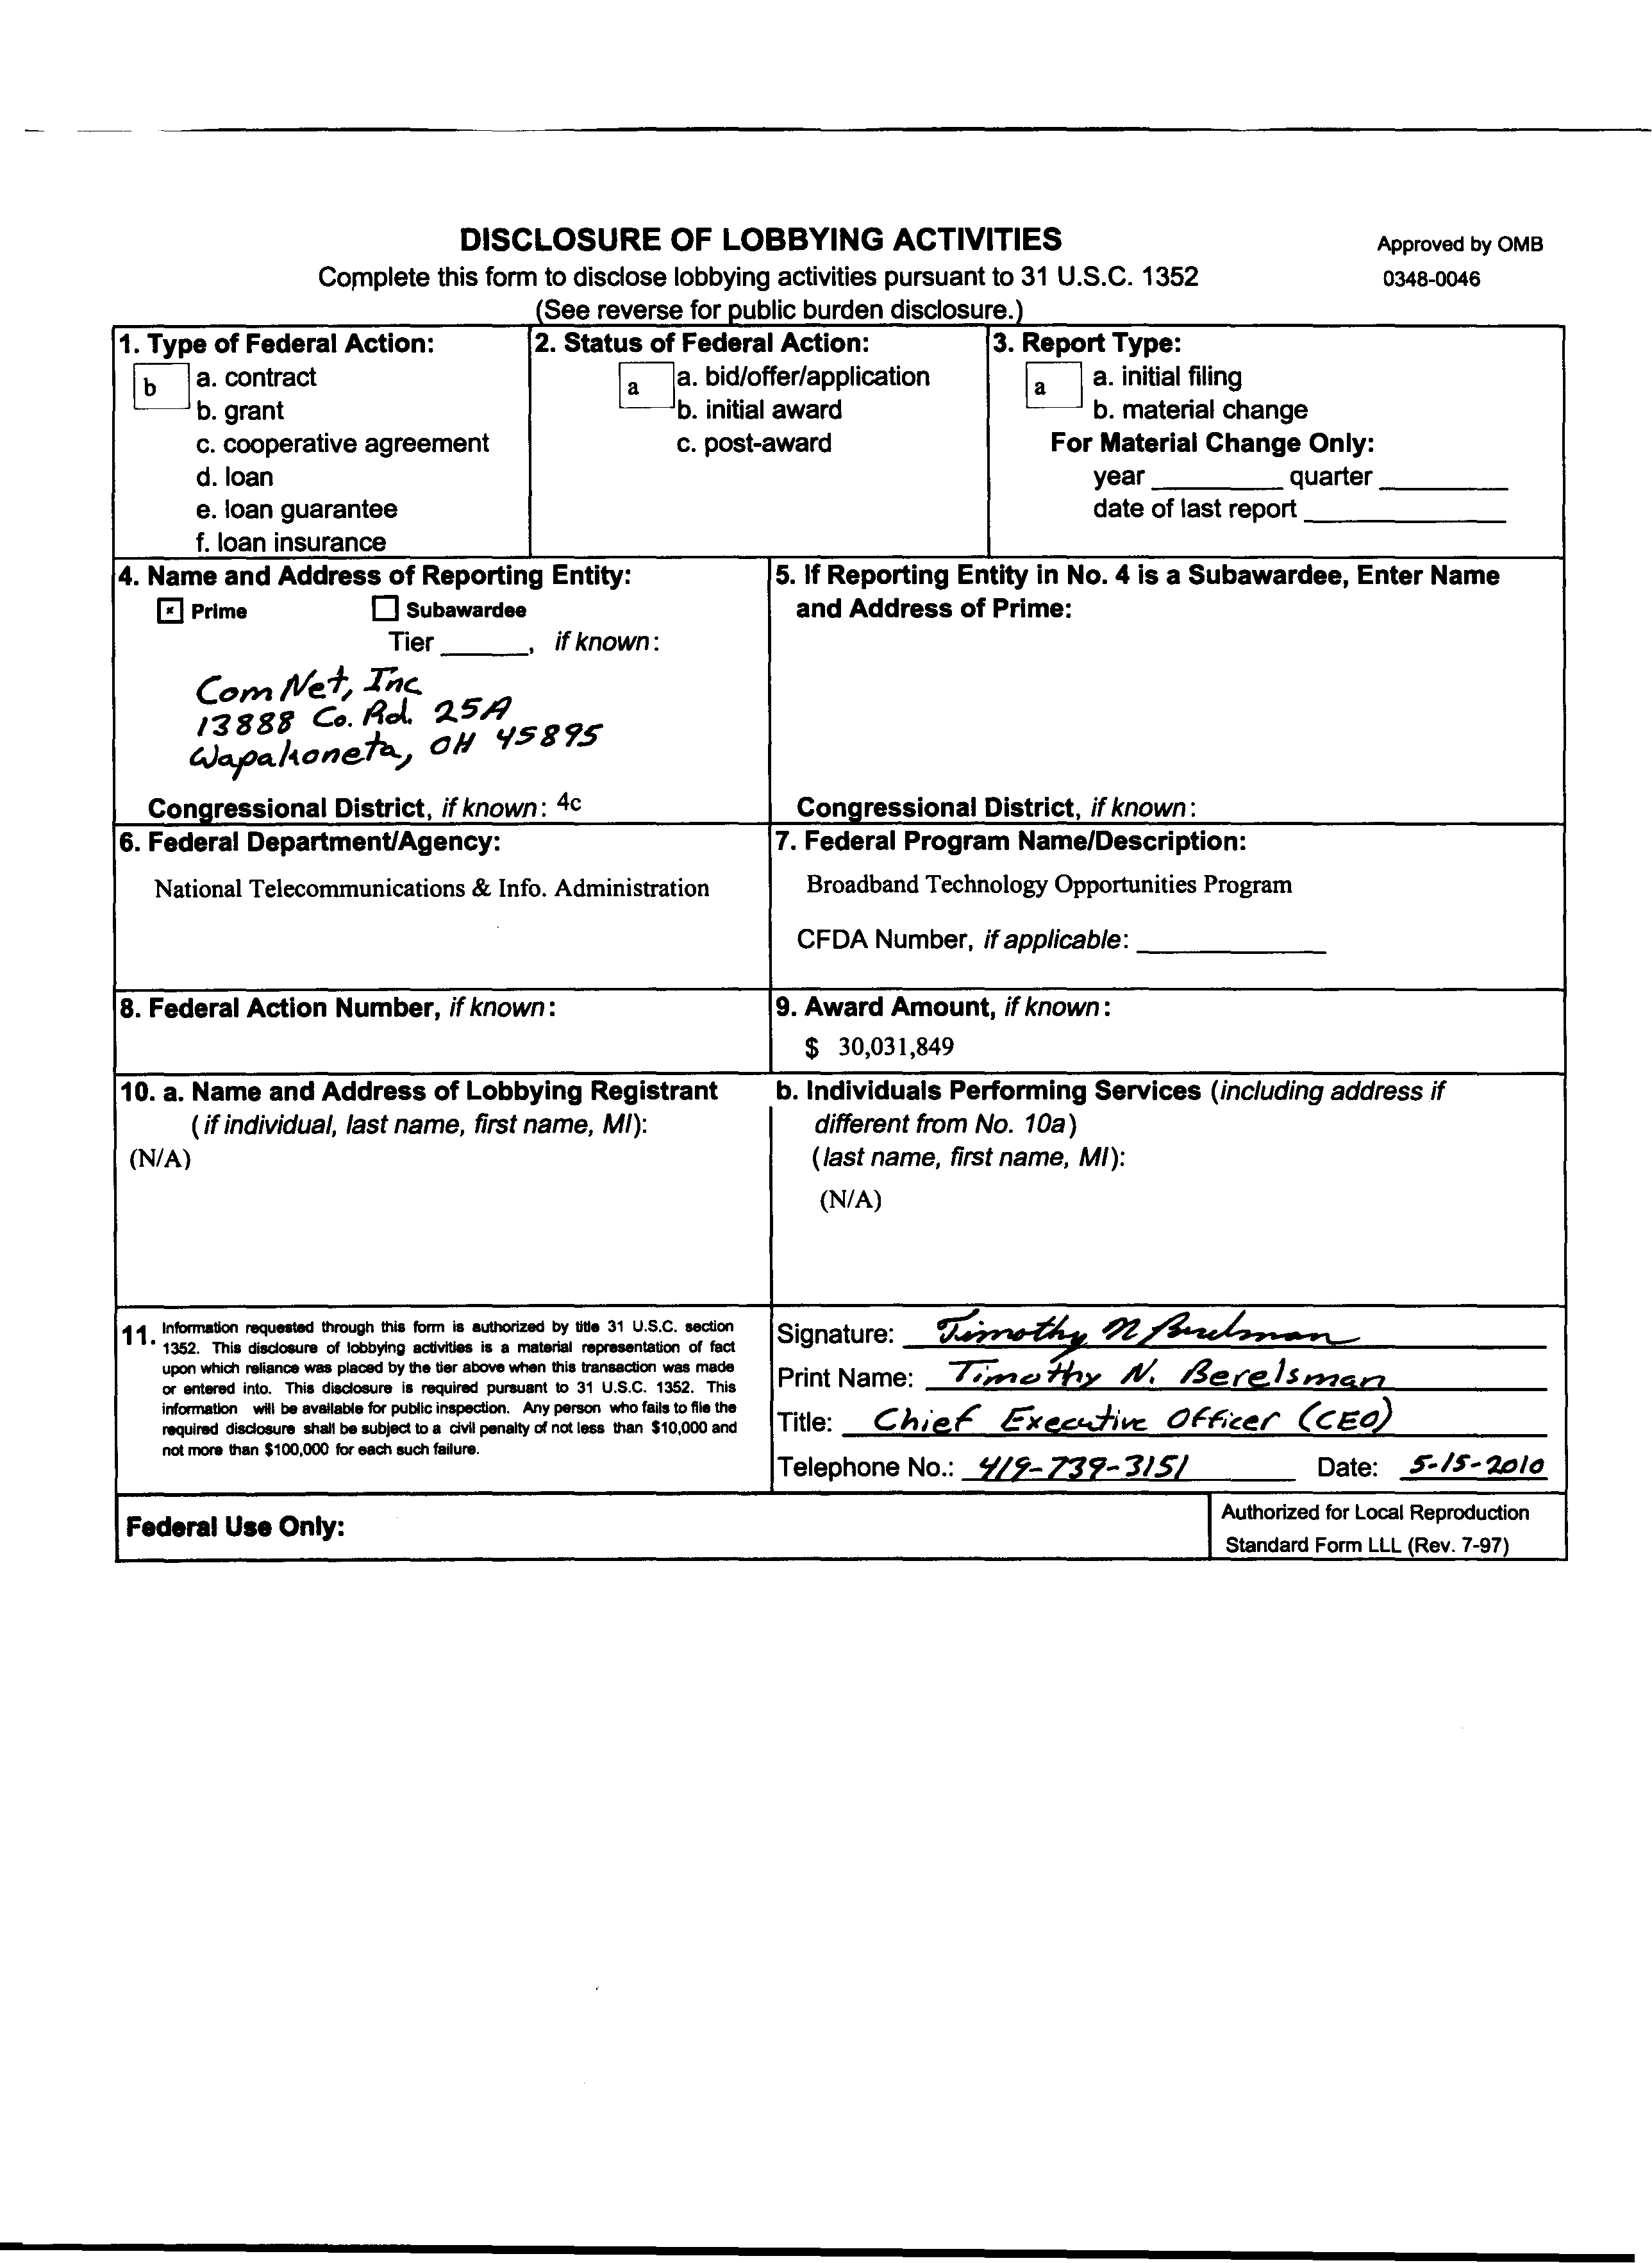 DISCLOSURE OF LOBBYING ACTIVITIES
Approved by OMB
Complete this form to disclose lobbying activities pursuant to 31 U.S.C. 1352
0348-0046
(See reverse for public burden disclosure.)
1. Type of Federal Action:
b
a. contract
b. grant
c. cooperative agreement
d. loan
e. loan guarantee
f. loan insurance
2. Status of Federal Action:
a
a. bid/offer/application
b. initial award
c. post-award
3. Report Type:
a
a. initial filing
b. material change
For Material Change Only:
year _________ quarter _________
date of last report ______________
4. Name and Address of Reporting Entity:
Prime Subawardee
Tier ______, if known:
Com Net, Inc
13888 Co. Rd. 25A
Wapakoneta, OH 45895
Congressional District, if known: 4c
5. If Reporting Entity in No. 4 is a Subawardee, Enter Name
and Address of Prime:
Congressional District, if known:
6. Federal Department/Agency:
National Telecommunications & Info. Administration
7. Federal Program Name/Description:
Broadband Technology Opportunities Program
CFDA Number, if applicable: _____________
8. Federal Action Number, if known:
9. Award Amount, if known:
$ 30,031,849
10. a. Name and Address of Lobbying Registrant
(if individual, last name, first name, MI):
(N/A)
b. Individuals Performing Services (including address if
different from No. 10a)
(last name, first name, MI):
(N/A)
11. Information requested through this form is authorized by title 31 U.S.C. section
1352. This disclosure of lobbying activities is a material representation of fact
upon which reliance was placed by the tier above when this transaction was made
or entered into. This disclosure is required pursuant to 31 U.S.C. 1352. This
information will be available for public inspection. Any person who fails to file the
required disclosure shall be subject to a civil penalty of not less than $10,000 and
not more than $100,000 for each such failure.
Signature: Timothy N Berelsman
Print Name: Timothy N. Berelsman
Title: Chief Executive Officer (CEO)
Telephone No.: 419-739-3151 Date: 5-15-2010
Federal Use Only:
Authorized for Local Reproduction
Standard Form LLL (Rev. 7-97)